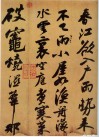 春江欲入戶雨勢來
不已雨小屋如漁舟濛〻
水雲裏空庖煮寒菜
破竈燒濕葦那